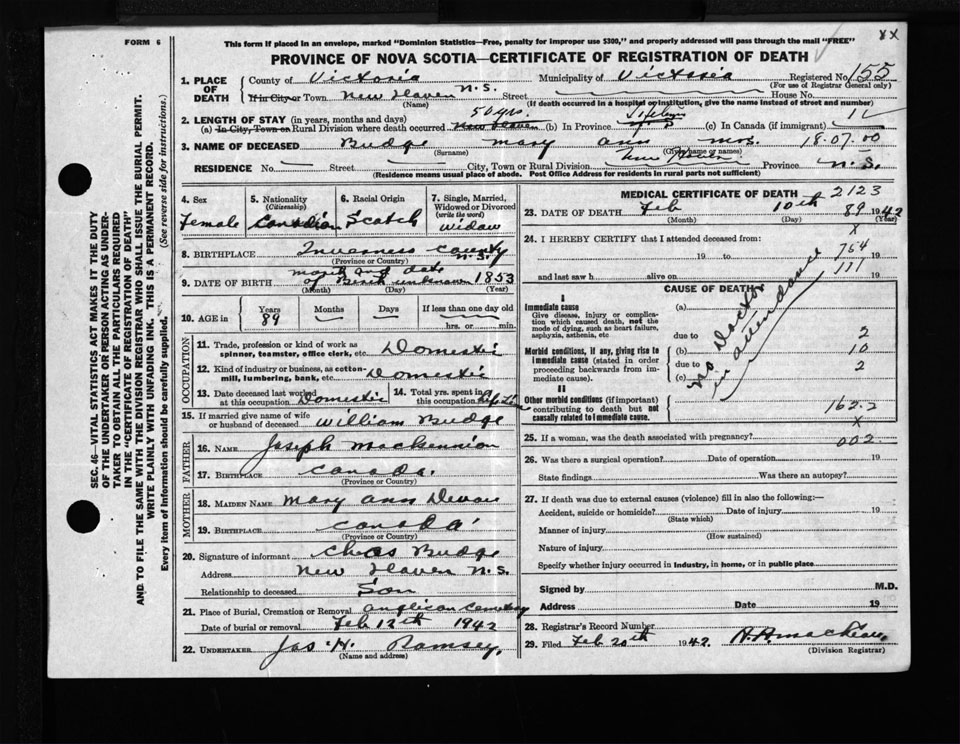 FORM 6
This form if placed in an envelope, marked "Dominion Statistics—Free, penalty for improper use $300," and properly addressed will pass through the mail "FREE"
PROVINCE OF NOVA SCOTIA—CERTIFICATE OF REGISTRATION OF DEATH
SEC. 46—VITAL STATISTICS ACT MAKES IT THE DUTY
OF THE UNDERTAKER OR PERSON ACTING AS UNDER-
TAKER TO OBTAIN ALL THE PARTICULARS REQUIRED
IN THE "CERTIFICATE OF REGISTRATION OF DEATH"
AND TO FILE THE SAME WITH THE DIVISION REGISTRAR WHO SHALL ISSUE THE BURIAL PERMIT.
WRITE PLAINLY WITH UNFADING INK. THIS IS A PERMANENT RECORD.
Every item of Information should be carefully supplied. (See reverse side for instructions.)
1. PLACE OF DEATH County of Victoria Municipality of Victoria Registered No. 155
(For use of Registrar General only)
If in City or Town New Haven N.S. Street House No.
(Name) (If death occurred in a hospital or institution, give the name instead of street and number)
2. LENGTH OF STAY (in years, months and days) 50 yrs.
(a) In City, Town or Rural Division where death occurred New Haven (b) In Province (c) In Canada (if immigrant)
3. NAME OF DECEASED Budge Mary Ann Mrs. 18.07.00
(Surname) (Given name or names)
RESIDENCE No. Street City, Town or Rural Division New Haven Province N.S.
(Residence means usual place of abode. Post Office Address for residents in rural parts not sufficient)
4. Sex Female
5. Nationality (Citizenship) Canadian
6. Racial Origin Scotch
7. Single, Married, Widowed or Divorced (write the word) Widow
8. BIRTHPLACE Inverness County N.S.
(Province or Country)
9. DATE OF BIRTH Month and date of Birth unknown 1853
(Month) (Day) (Year)
10. AGE in Years 89 Months Days If less than one day old hrs. or min.
OCCUPATION
11. Trade, profession or kind of work as spinner, teamster, office clerk, etc. Domestic
12. Kind of industry or business, as cotton-mill, lumbering, bank, etc. Domestic
13. Date deceased last worked at this occupation Domestic 14. Total yrs. spent in this occupation Life Time
15. If married give name of wife or husband of deceased William Budge
FATHER
16. NAME Joseph MacKinnion
17. BIRTHPLACE Canada.
(Province or Country)
MOTHER
18. MAIDEN NAME Mary Ann
19. BIRTHPLACE Canada
(Province or Country)
20. Signature of informant Chas Budge
Address New Haven N.S.
Relationship to deceased Son
21. Place of Burial, Cremation or Removal Anglican Cemetery
Date of burial or removal Feb 12th 1942
22. UNDERTAKER Jas. H. Ramsey.
(Name and address)
MEDICAL CERTIFICATE OF DEATH 2123
23. DATE OF DEATH Feb 10th 89 1942
(Month) (Day) (Year)
24. I HEREBY CERTIFY that I attended deceased from: X
19 to 754 19
and last saw h alive on 111 19
CAUSE OF DEATH
I
Immediate cause (a)
Give disease, injury, or complication which caused death, not the mode of dying, such as heart failure, asphyxia, asthenia, etc due to 2
Morbid conditions, if any, giving rise to immediate cause (stated in order proceeding backwards from immediate cause). (b) 10
due to 2
(c)
No Doctor in attendance
II
Other morbid conditions (if important) contributing to death but not causally related to immediate cause. 162.2
X
25. If a woman, was the death associated with pregnancy? 002
26. Was there a surgical operation? Date of operation 19
State findings Was there an autopsy?
27. If death was due to external causes (violence) fill in also the following:—
Accident, suicide or homicide? Date of injury 19
(State which)
Manner of injury
(How sustained)
Nature of injury
Specify whether injury occurred in industry, in home, or in public place
Signed by M.D.
Address Date 19
28. Registrar's Record Number
29. Filed Feb 20th 1942
(Division Registrar)